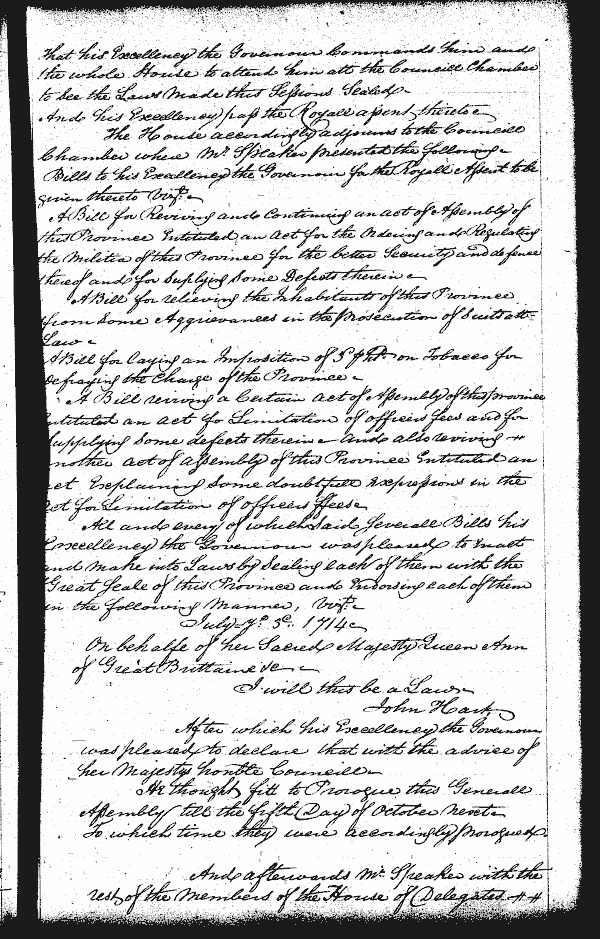 that his Excellency the Governour Commands him and
the whole House to attend him att the Councill Chamber
to See the Laws Made this Sessions Sealed
And his Excellency pass the Royall assent thereto
The House accordingly adjourns to the Councill
Chamber where Mr. Speaker presented the following
Bills to his Excellency the Governour for the Royall Assent to be
given thereto Vizt.
A Bill for Reviving and Continuing an act of Assembly of
this Province Entituled an Act for the Ordering and Regulating
the Militia of this Province for the better Security and defence
thereof and for Suplying Some Defects therein
A Bill for relieving the Inhabitants of this Province
from Some Aggrievances in the prosecution of Suits att
Law
A Bill for laying an Imposition of on Tobacco for
defraying the Charge of the Province
A Bill reviving a Certain act of Assembly of this province
entituled an act fo Limitation of officers fees and for
Supplying Some defects therein and also reviving
another act of assembly of this Province Entituled an
act Explaining Some doubtfull Expressions in the
act for Limitation of officers ffees
All and every of which said Severall Bills his
Excellency the Governour was pleased to Enact
and make into Laws by Sealing each of them with the
Great Seale of this Province and Endorsing each of them
in the following Manner, Vizt.
July ye. 3d. 1714
On behalfe of her Sacred Majesty Queen Ann
of Great Brittaine &c
I will this be a Law
John Hart
After which his Excellency the Governour
was pleased to declare that with the advice of
her Majestys honble Councill
He thought fitt to Prorogue this Generall
Assembly till the fifth Day of October Next
To which time they were accordingly prorogued
And afterwards Mr. Speaker with the
rest of the Members of the House of Delegates